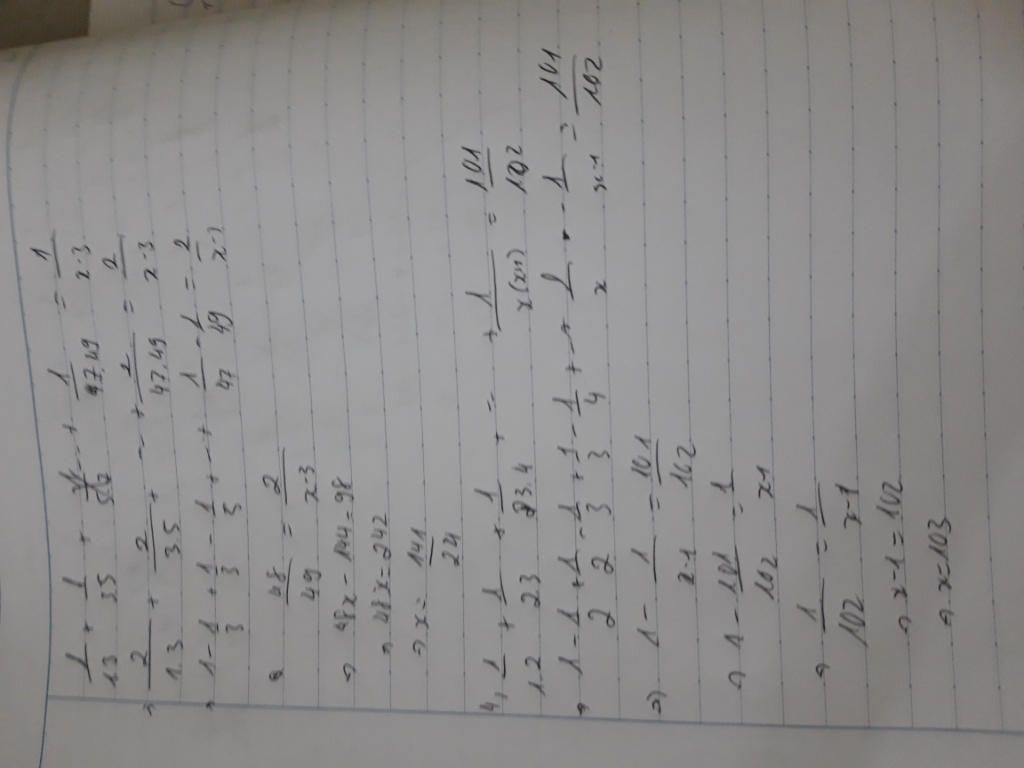 1/1.3 + 1/3.5 + --- + 1/47.49 = 1/x-3
→ 2/1.3 + 2/3.5 + --- + 2/47.49 = 2/x-3
→ 1 - 1/3 + 1/3 - 1/5 + --- + 1/47 - 1/49 = 2/x-3
48/49 = 2/x-3
→ 48x - 144 = 98
→ 48x = 242
→ x = 141/24
4, 1/1.2 + 1/2.3 + 1/3.4 + --- + 1/x(x-1) = 101/102
→ 1 - 1/2 + 1/2 - 1/3 + 1/3 - 1/4 + --- + 1/x - 1/x-1 = 101/102
→ 1 - 1/x-1 = 101/102
→ 1 - 101/102 = 1/x-1
→ 1/102 = 1/x-1
→ x-1 = 102
→ x = 103